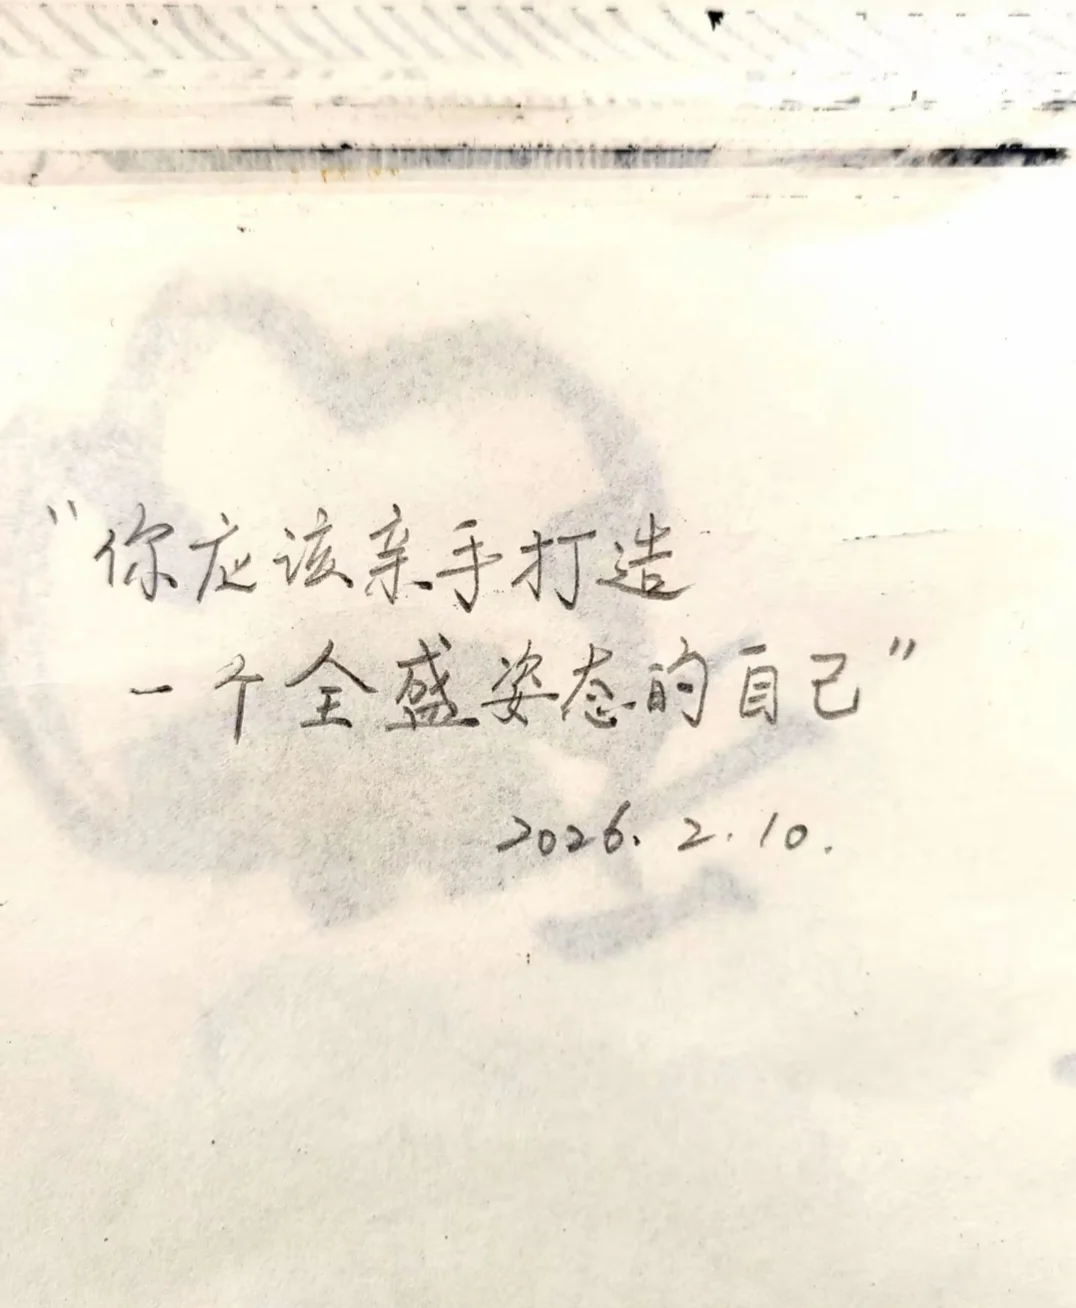 “你应该亲手打造
一个全盛姿态的自己”
2026.2.10.